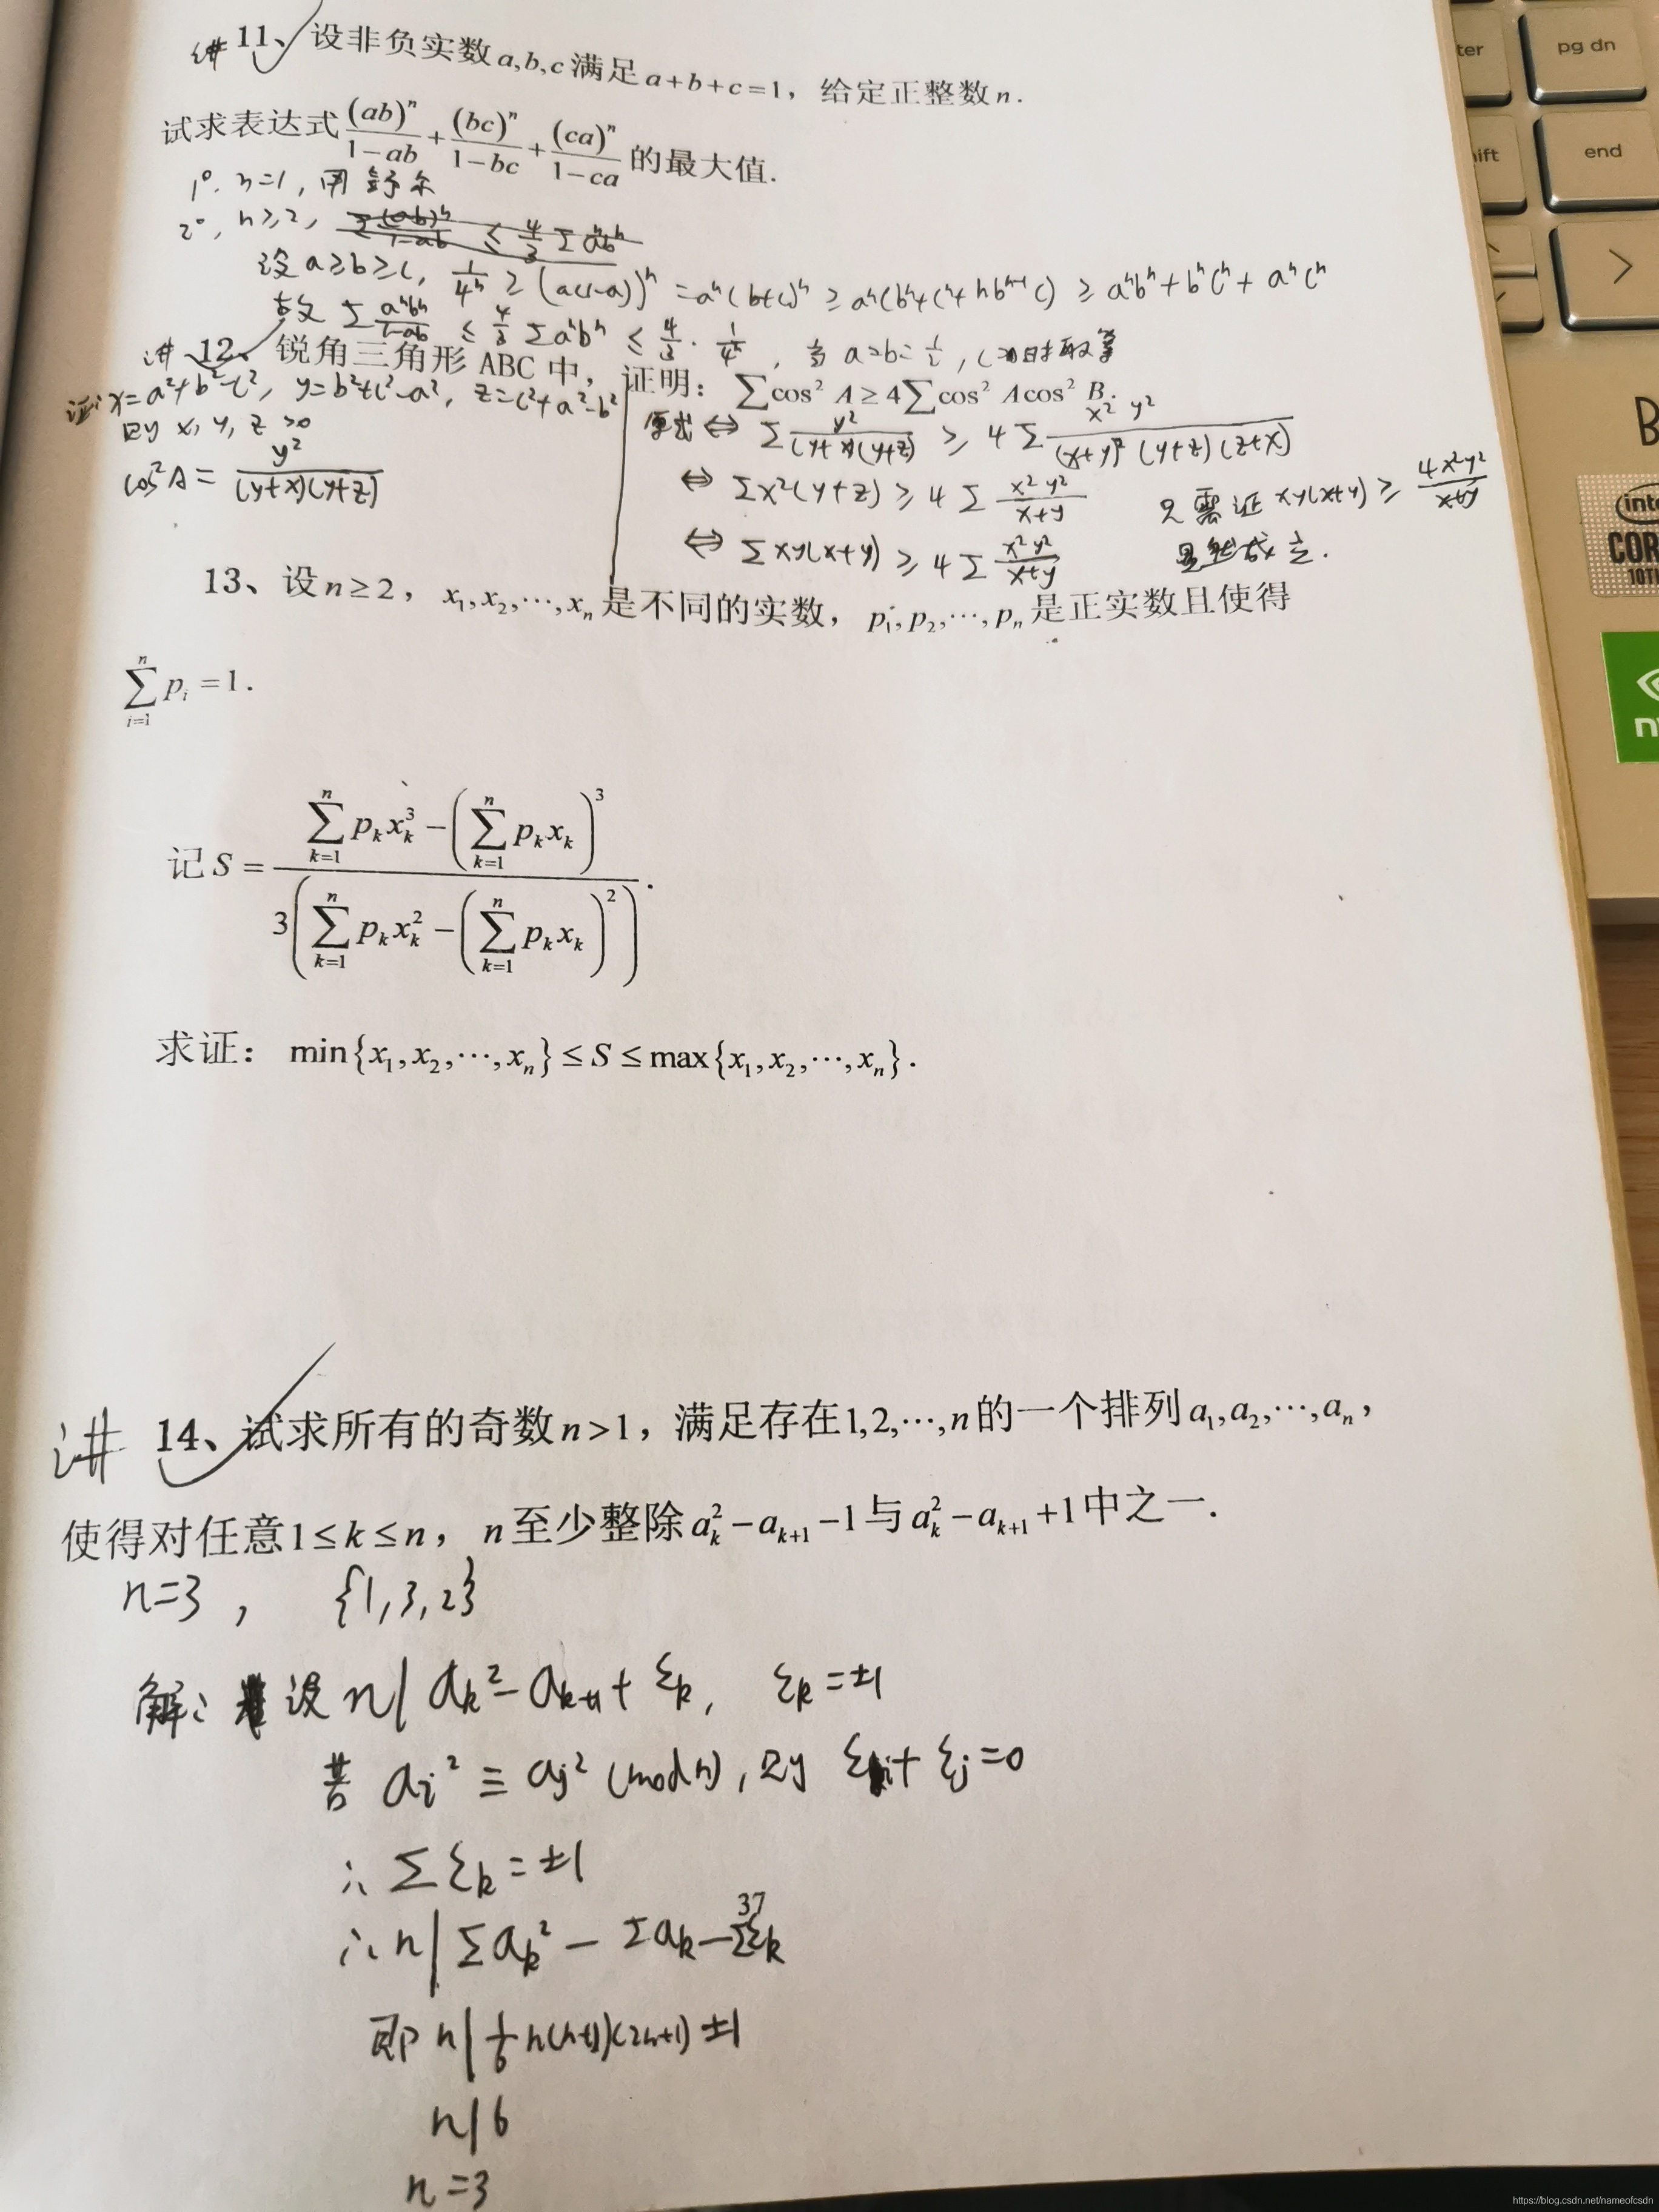 讲 11、设非负实数a,b,c满足a+b+c=1，给定正整数n.
试求表达式 (ab)^n/(1-ab) + (bc)^n/(1-bc) + (ca)^n/(1-ca) 的最大值.
1°. n=1, 用舒尔
2°, n≥2, Σ(ab)^n/(1-ab) ≤ 4/3 Σa^n b^n
设 a≥b≥c, 1/4^n ≥ (a(1-a))^n = a^n(b+c)^n ≥ a^n(b^n+c^n+nb^{n-1}c) ≥ a^n b^n + b^n c^n + a^n c^n
故 Σ a^n b^n/(1-ab) ≤ 4/3 Σa^n b^n ≤ 4/3 · 1/4^n , 当 a=b=1/2, c=0时取等
讲 12、锐角三角形ABC中，证明：Σcos² A ≥ 4Σcos² A cos² B.
证: x=a²+b²-c², y=b²+c²-a², z=c²+a²-b²
则 x, y, z >0
cos²A = y²/((y+x)(y+z))
原式 ⇔ Σ y²/((y+x)(y+z)) ≥ 4Σ x² y²/((x+y)²(y+z)(z+x))
⇔ Σx²(y+z) ≥ 4Σ x²y²/(x+y) 只需证 xy(x+y) ≥ 4x²y²/(x+y)
⇔ Σxy(x+y) ≥ 4Σ x²y²/(x+y) 显然成立.
13、设n≥2，x₁,x₂,⋯,xₙ是不同的实数，p₁,p₂,⋯,pₙ是正实数且使得
∑_{i=1}^{n} p_i =1.
记 S = (∑_{k=1}^{n} p_k x_k^3 − (∑_{k=1}^{n} p_k x_k)^3) / (3(∑_{k=1}^{n} p_k x_k^2 − (∑_{k=1}^{n} p_k x_k)^2)).
求证：min{x₁,x₂,⋯,xₙ} ≤ S ≤ max{x₁,x₂,⋯,xₙ}.
讲 14、试求所有的奇数n>1，满足存在1,2,⋯,n的一个排列a₁,a₂,⋯,aₙ，
使得对任意1≤k≤n，n至少整除a_k²−a_{k+1}−1与a_k²−a_{k+1}+1中之一.
n=3， {1,3,2}
解: 设 n| a_k²-a_{k+1}+ε_k, ε_k=±1
若 a_i² ≡ a_j² (mod n), 则 ε_i+ε_j=0
∴ Σε_k=±1
37
∴ n| Σa_k² - Σa_k - Σε_k
即 n| 1/6 n(n+1)(2n+1) ±1
n|6
n=3
ter
pg dn
hift
end
>
B
inte
COR
10TH
n
https://blog.csdn.net/nameofcsdn